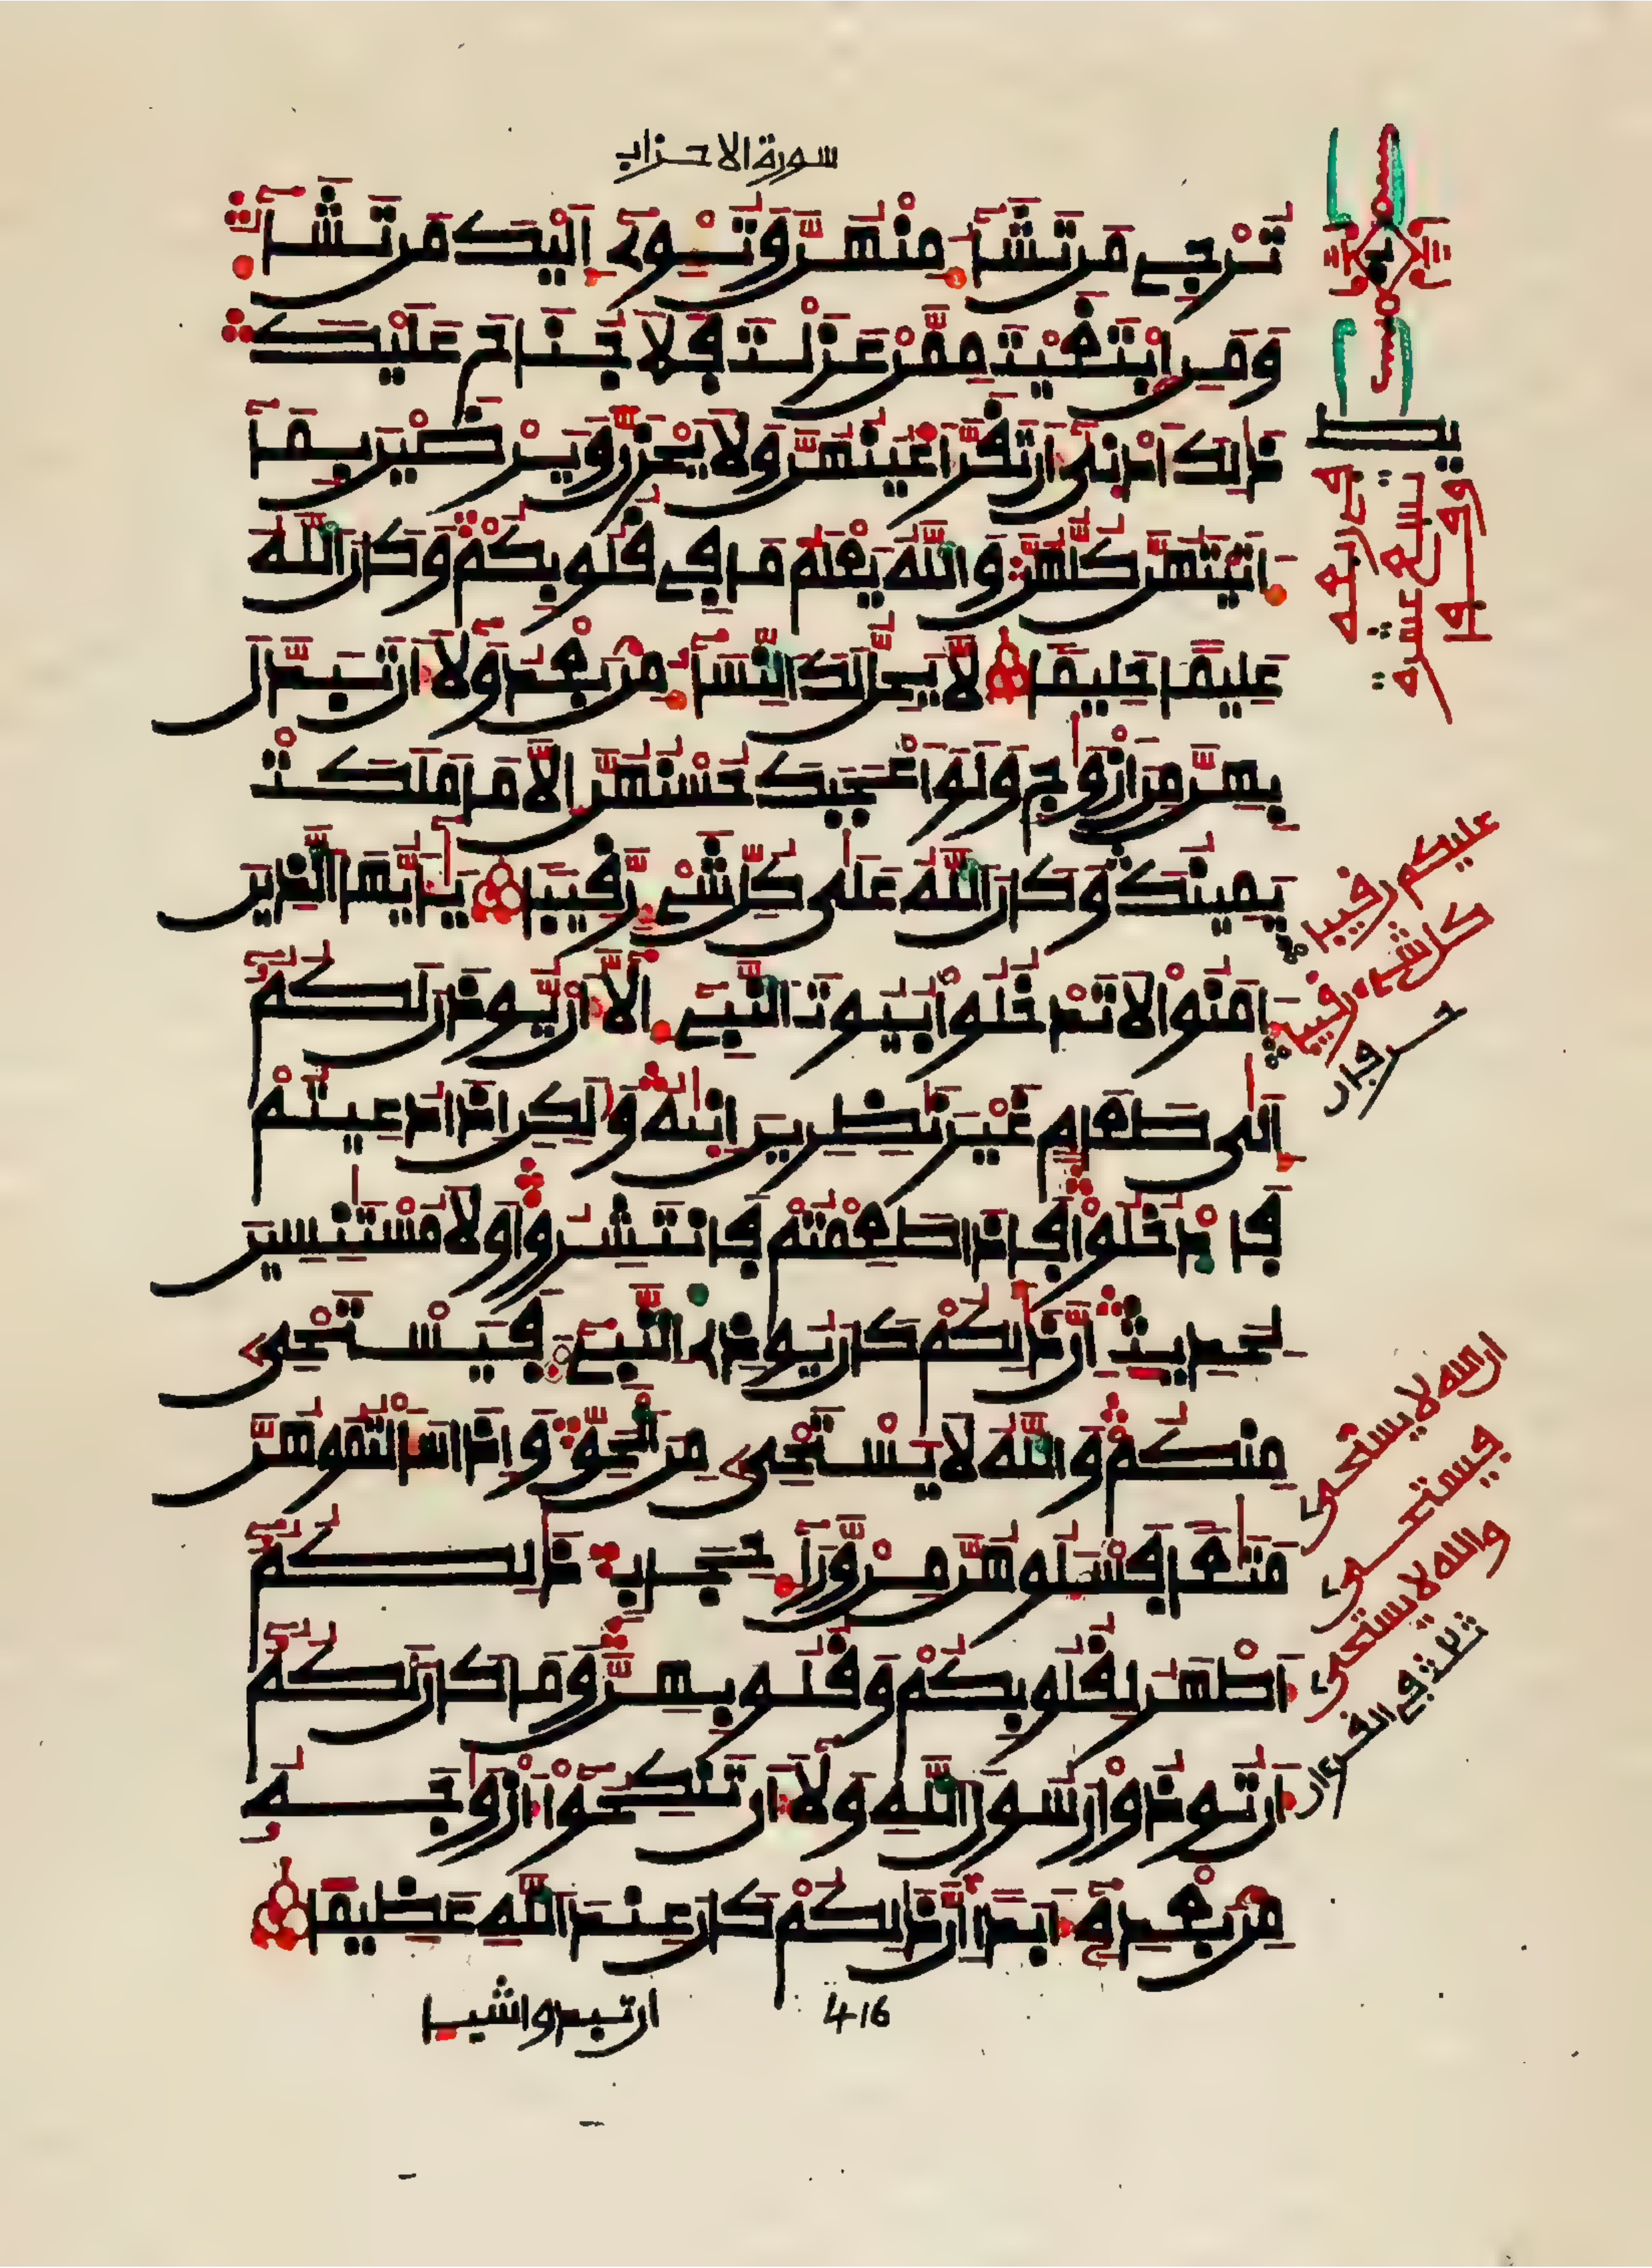 سورة الاحزاب
تُرْجِے مَن تَشَآءُ مِنْهُنَّ وَتُـْٔوِےٓ إِلَيْكَ مَن تَشَآءُ
وَمَنِ ابْتَغَيْتَ مِمَّنْ عَزَلْتَ فَلَا جُنَاحَ عَلَيْكَ
ذَٰلِكَ أَدْنَىٰٓ أَن تَقَرَّ أَعْيُنُهُنَّ وَلَا يَحْزَنَّ وَيَرْضَيْنَ بِمَآ
ءَاتَيْتَهُنَّ كُلُّهُنَّ وَاللَّهُ يَعْلَمُ مَا فِے قُلُوبِكُمْ وَكَانَ اللَّهُ
عَلِيمًا حَلِيمًا لَّا يَحِلُّ لَكَ النِّسَآءُ مِنۢ بَعْدُ وَلَآ أَن تَبَدَّلَ
بِهِنَّ مِنْ أَزْوَٰجٍ وَلَوْ أَعْجَبَكَ حُسْنُهُنَّ إِلَّا مَا مَلَكَتْ
يَمِينُكَ وَكَانَ اللَّهُ عَلَىٰ كُلِّ شَےْءٍ رَّقِيبًا يَٰٓأَيُّهَا الَّذِينَ
ءَامَنُوا لَا تَدْخُلُوا بُيُوتَ النَّبِےٓءِ الَّآ أَنْ يُّوذَنَ لَكُمُۥٓ
إِلَىٰ طَعَامٍ غَيْرَ نَٰظِرِينَ إِنَىٰهُ وَلَٰكِنِ إِذَا دُعِيتُمْ
فَادْخُلُوا فَإِذَا طَعِمْتُمْ فَانتَشِرُوا وَلَا مُسْتَٰنِسِينَ
لِحَدِيثٍ إِنَّ ذَٰلِكُمْ كَانَ يُوذِے النَّبِےٓءَ فَيَسْتَحْيِۦ
مِنكُمْ وَاللَّهُ لَا يَسْتَحْيِۦ مِنَ الْحَقِّ وَإِذَا سَأَلْتُمُوهُنَّ
مَتَٰعًا فَسْـَٔلُوهُنَّ مِنْ وَّرَآءِ حِجَابٍ ذَٰلِكُمُۥٓ
أَطْهَرُ لِقُلُوبِكُمْ وَقُلُوبِهِنَّ وَمَا كَانَ لَكُمُۥٓ
أَن تُوذُوا رَسُولَ اللَّهِ وَلَآ أَن تَنكِحُوٓا أَزْوَٰجَهُۥ
مِنۢ بَعْدِهِۦٓ أَبَدًا إِنَّ ذَٰلِكُمْ كَانَ عِندَ اللَّهِ عَظِيمًا
عليكم رقيبا
كل شےء رقيبا
حرفان
ان الله لا يستحى
فيستحى
والله لا يستحى
ثلثة فے القرءان
ان تبدوا شيـا
416